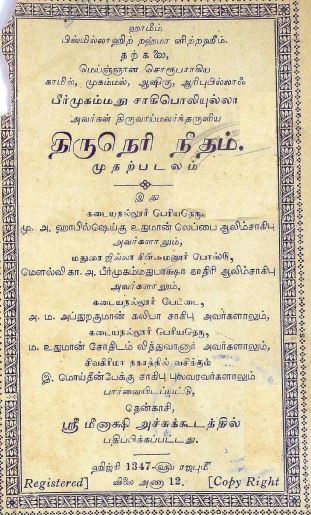 ஹாமீம்
பிஸ்மில்லாஹிற் றஹ்மா னிற்றஹீம்.
த ற் க லை,
மெய்ஞ்ஞான சொரூபராகிய
காமில், முகம்மல், ஆஷிகு, ஆரிபுபில்லாஃ
பீர்முகம்மது சாகிபொலியுல்லா
அவர்கள் திருவாய்மலர்ந்தருளிய
திருநெரி நீதம்.
முதற்படலம்
இ ஃ து
கடையநல்லூர் பெரியதெரு,
மு. அ. ஹாபில்ஷெய்கு உதுமான் லெப்பை ஆலிம்சாகிபு
அவர்களாலும்,
மதுரை ஜில்லா சின்னமனூர் போஸ்டு,
மௌல்வி கா. அ. பீர்முகம்மதுபாக்ஷா காதிரி ஆலிம்சாகிபு
அவர்களாலும்,
கடையநல்லூர் பேட்டை,
அ. ம. அப்துறகுமான் கலிபா சாகிபு அவர்களாலும்,
கடையநல்லூர் பெரியதெரு,
ம. உதுமான் சோதிடம் வித்துவானூர் அவர்களாலும்,
சிவகிரிமா நகரத்தில் வசிக்கும்
இ. மொய்தீன்பேக்கு சாகிபு புலவரவர்களாலும்
பார்வையிடப்பட்டு,
தென்காசி,
ஸ்ரீ மீனாக்ஷி அச்சுக்கூடத்தில்
பதிப்பிக்கப்பட்டது.
ஹிஜ்ரி 1347-௵ ரஜபுமீ
Registered] விலை அணா 12. [Copy Right